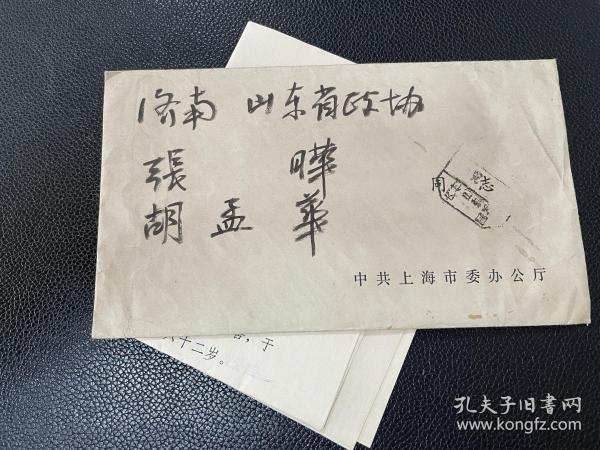 济南 山东省政协
張 曄
胡孟華
同志
中共上海市委办公厅
，于
六十二岁。
孔夫子旧書网
www.kongfz.com